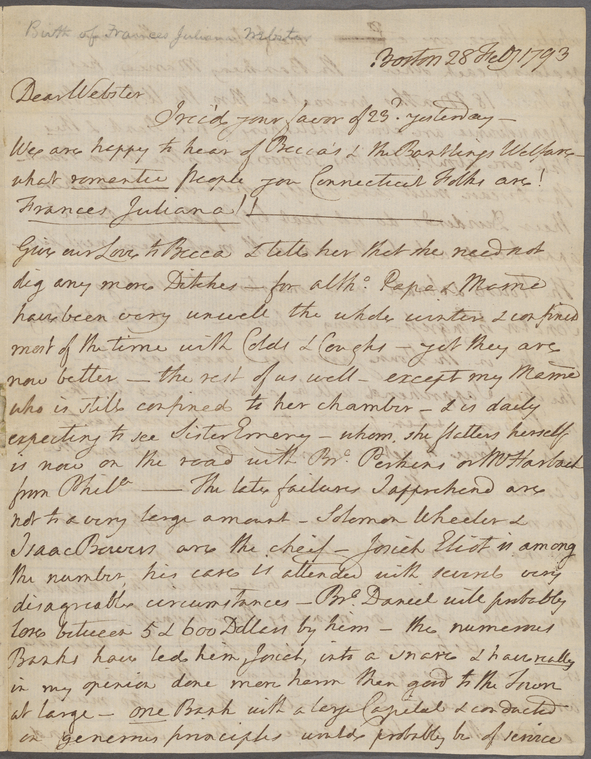 Birth of Frances Juliana Webster
2
Boston 28 Feby 1793
Dear Webster
I rec'd your favor of 23d yesterday —
We are happy to hear of Becca's & the Bantlings Welfare
what romantic people you Connecticut Folks are!
Frances Juliana!!
Give our Love to Becca & tell her that she need not
dig any more Ditches — for altho Papa & Mama
have been very unwell the whole winter & confined
most of the time with Colds & Coughs — yet they are
now better — the rest of us well — except my Mama
who is still confined to her chamber — & is daily
expecting to see Sister Emery — whom she flatters herself
is now on the road with Br. Perkins or Mr
from Phila — The late failures I apprehend are
not to a very large amount — Solomon Wheeler &
Isaac Bowers are the cheif — Josiah Eliot is among
the number his case is attended with several very
disagreable circumstances — Br. Daniel will probably
lose between 5 & 600 Dollars by him — the numerous
Banks have led him, Josiah, into a snare & have really
in my opinion done more harm than good to the Town
at large — one Bank with a large Capital & conducted
on generous principles would probably be of service